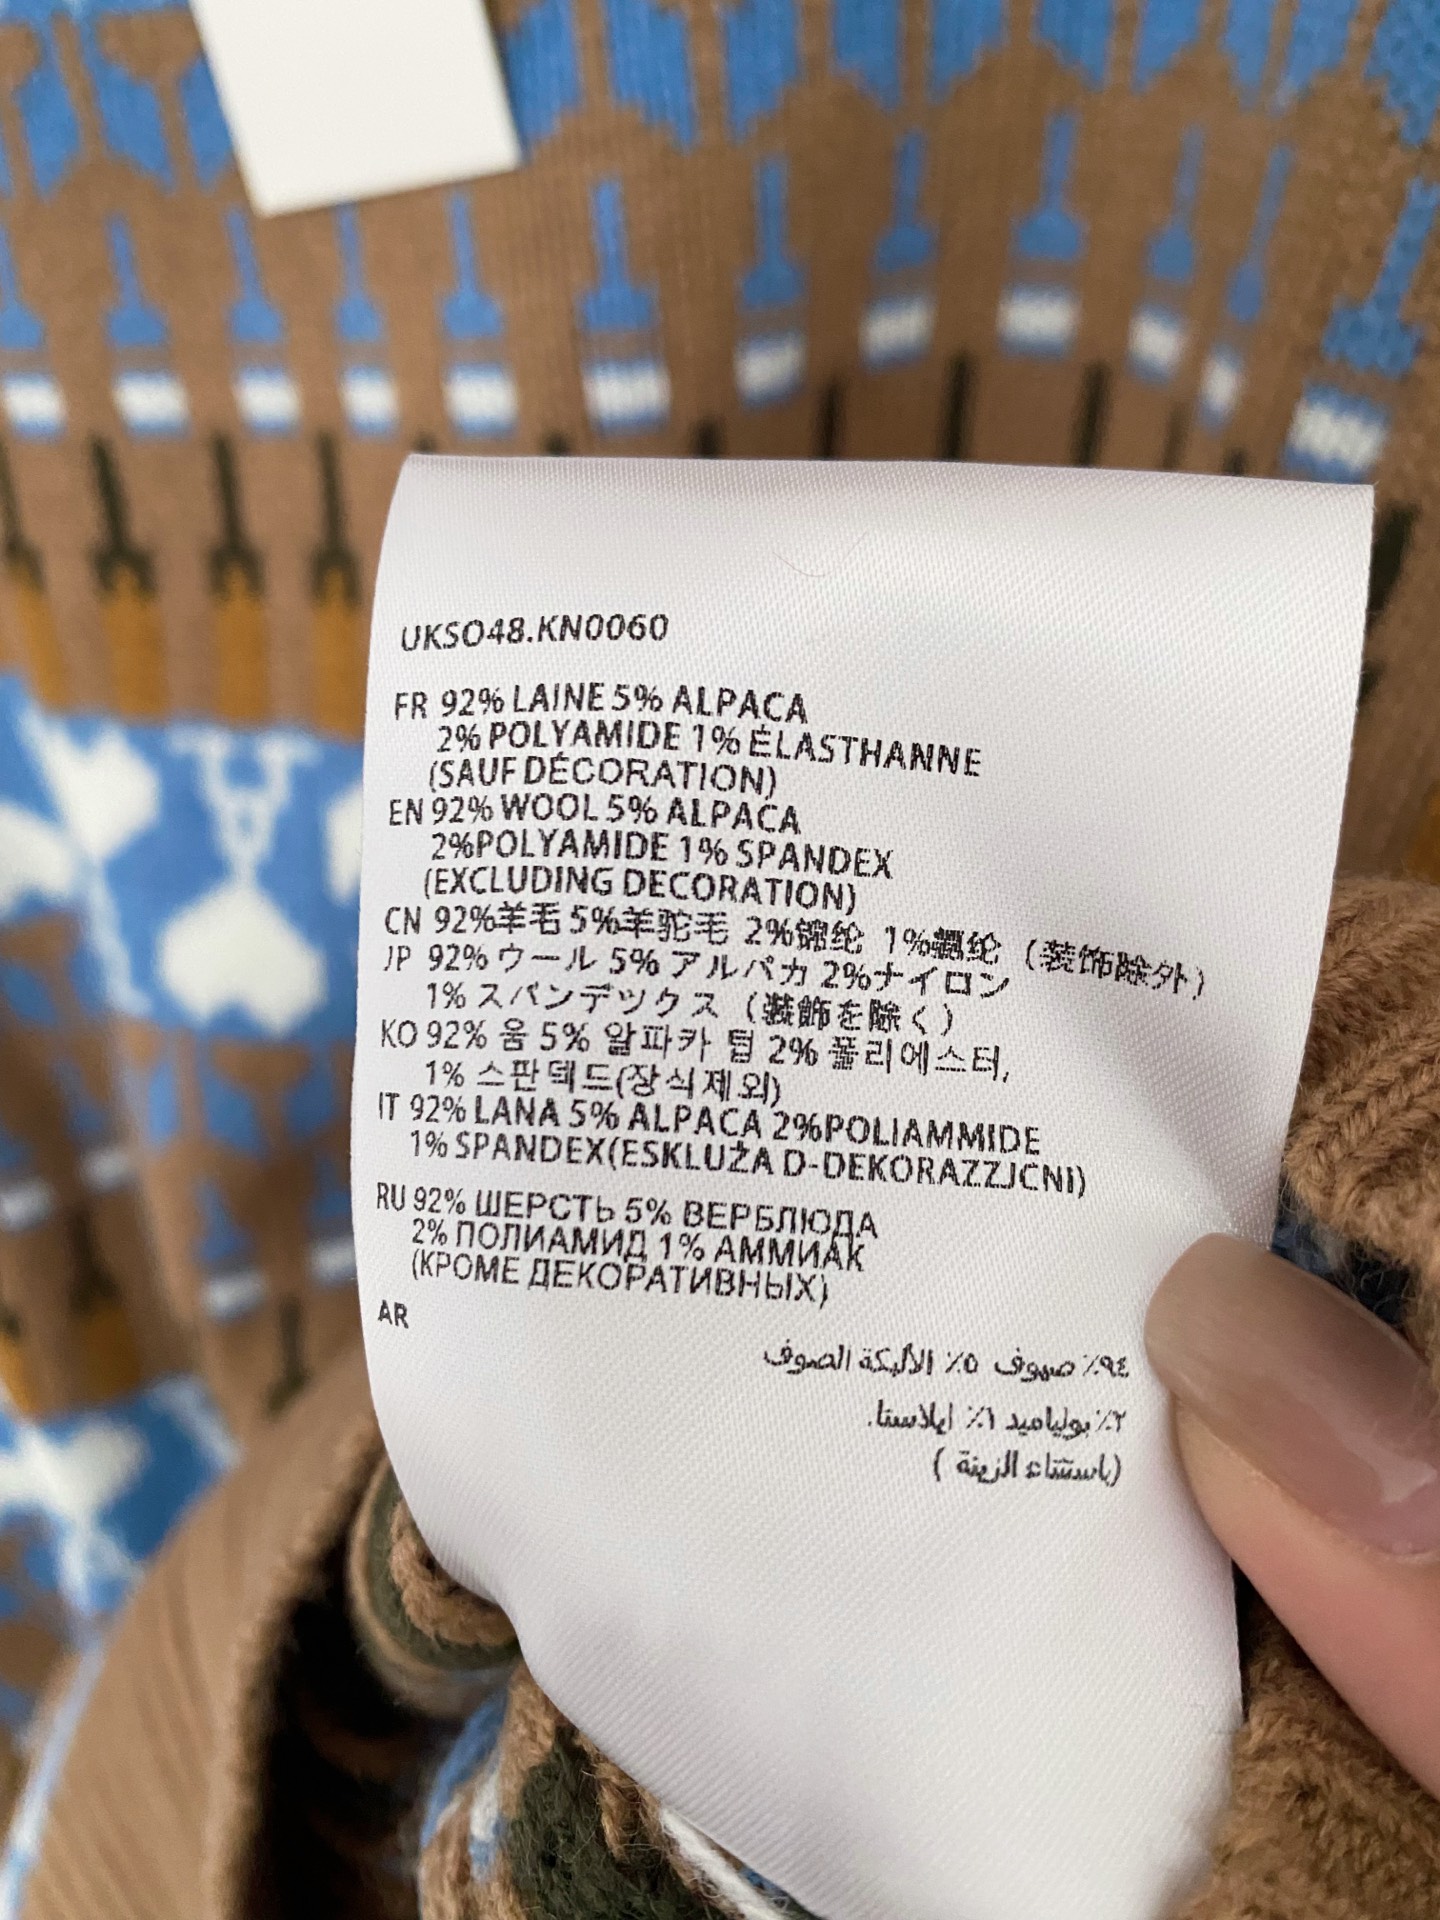 UKSO48.KN0060
FR 92% LAINE 5% ALPACA
2% POLYAMIDE 1% ÉLASTHANNE
(SAUF DÉCORATION)
EN 92% WOOL 5% ALPACA
2%POLYAMIDE 1% SPANDEX
(EXCLUDING DECORATION)
CN 92%羊毛 5%羊驼毛 2%锦纶 1%氨纶 (装饰除外)
JP 92% ウール 5% アルパカ 2%ナイロン
1% スパンデックス (装飾を除く)
KO 92% 움 5% 알파카 털 2% 폴리에스터,
1% 스판덱드(장식제외)
IT 92% LANA 5% ALPACA 2%POLIAMMIDE
1% SPANDEX(ESKLUŻA D-DEKORAZZJCNI)
RU 92% ШЕРСТЬ 5% ВЕРБЛЮДА
2% ПОЛИАМИД 1% АММИАК
(КРОМЕ ДЕКОРАТИВНЫХ)
AR
٩٤٪ صوف ٥٪ الألبكة الصوف
٢٪ بولياميد ١٪ إيلاستا.
(باستثناء الزينة )